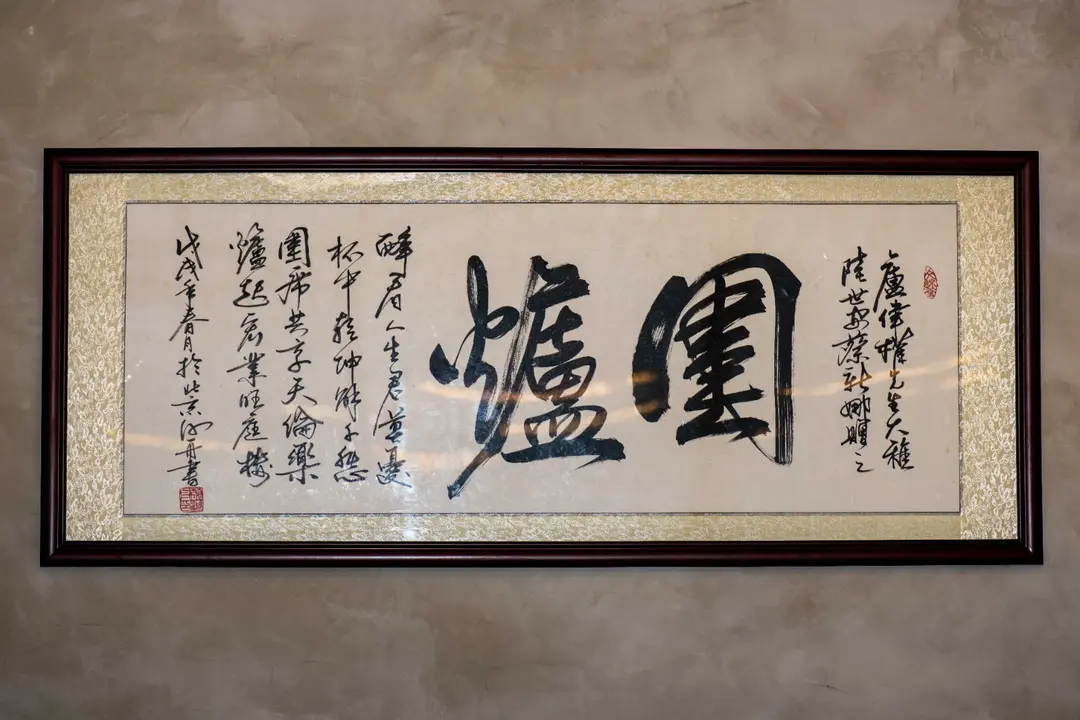 盧偉先生大雅
陸世蔡新娜贈之
圍爐
醉看人生君莫憂
杯中乾坤解千愁
圍席共享天倫樂
爐起宏業旺庭樓
戊戌年春月於北京書